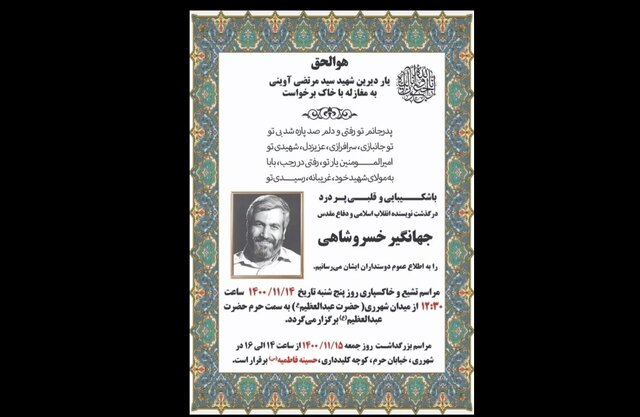 هوالحق
یار دیرین شهید سید مرتضی آوینی
به مغازله با خاک برخواست
پدرجانم تو رفتی و دلم صد پاره شد بی تو
تو جانبازی، سرافرازی، عزیزدل، شهیدی تو
امیرالمومنین یار تو، رفتی در رجب، بابا
به مولای شهید خود، غریبانه، رسیدی تو
باشکیبایی و قلبی پر درد
درگذشت نویسنده انقلاب اسلامی و دفاع مقدس
جهانگیر خسروشاهی
را به اطلاع عموم دوستداران ایشان می‌رسانیم.
مراسم تشیع و خاکسپاری روز پنج شنبه تاریخ ۱۴۰۰/۱۱/۱۴ ساعت
۱۲:۳۰ از میدان شهرری( حضرت عبدالعظیم(ع) به سمت حرم حضرت
عبدالعظیم(ع) برگزار می‌گردد.
مراسم بزرگداشت روز جمعه ۱۴۰۰/۱۱/۱۵ از ساعت ۱۴ الی ۱۶ در
شهرری ، خیابان حرم، کوچه کلیدداری ، حسینه فاطمیه(س) برقرار است.